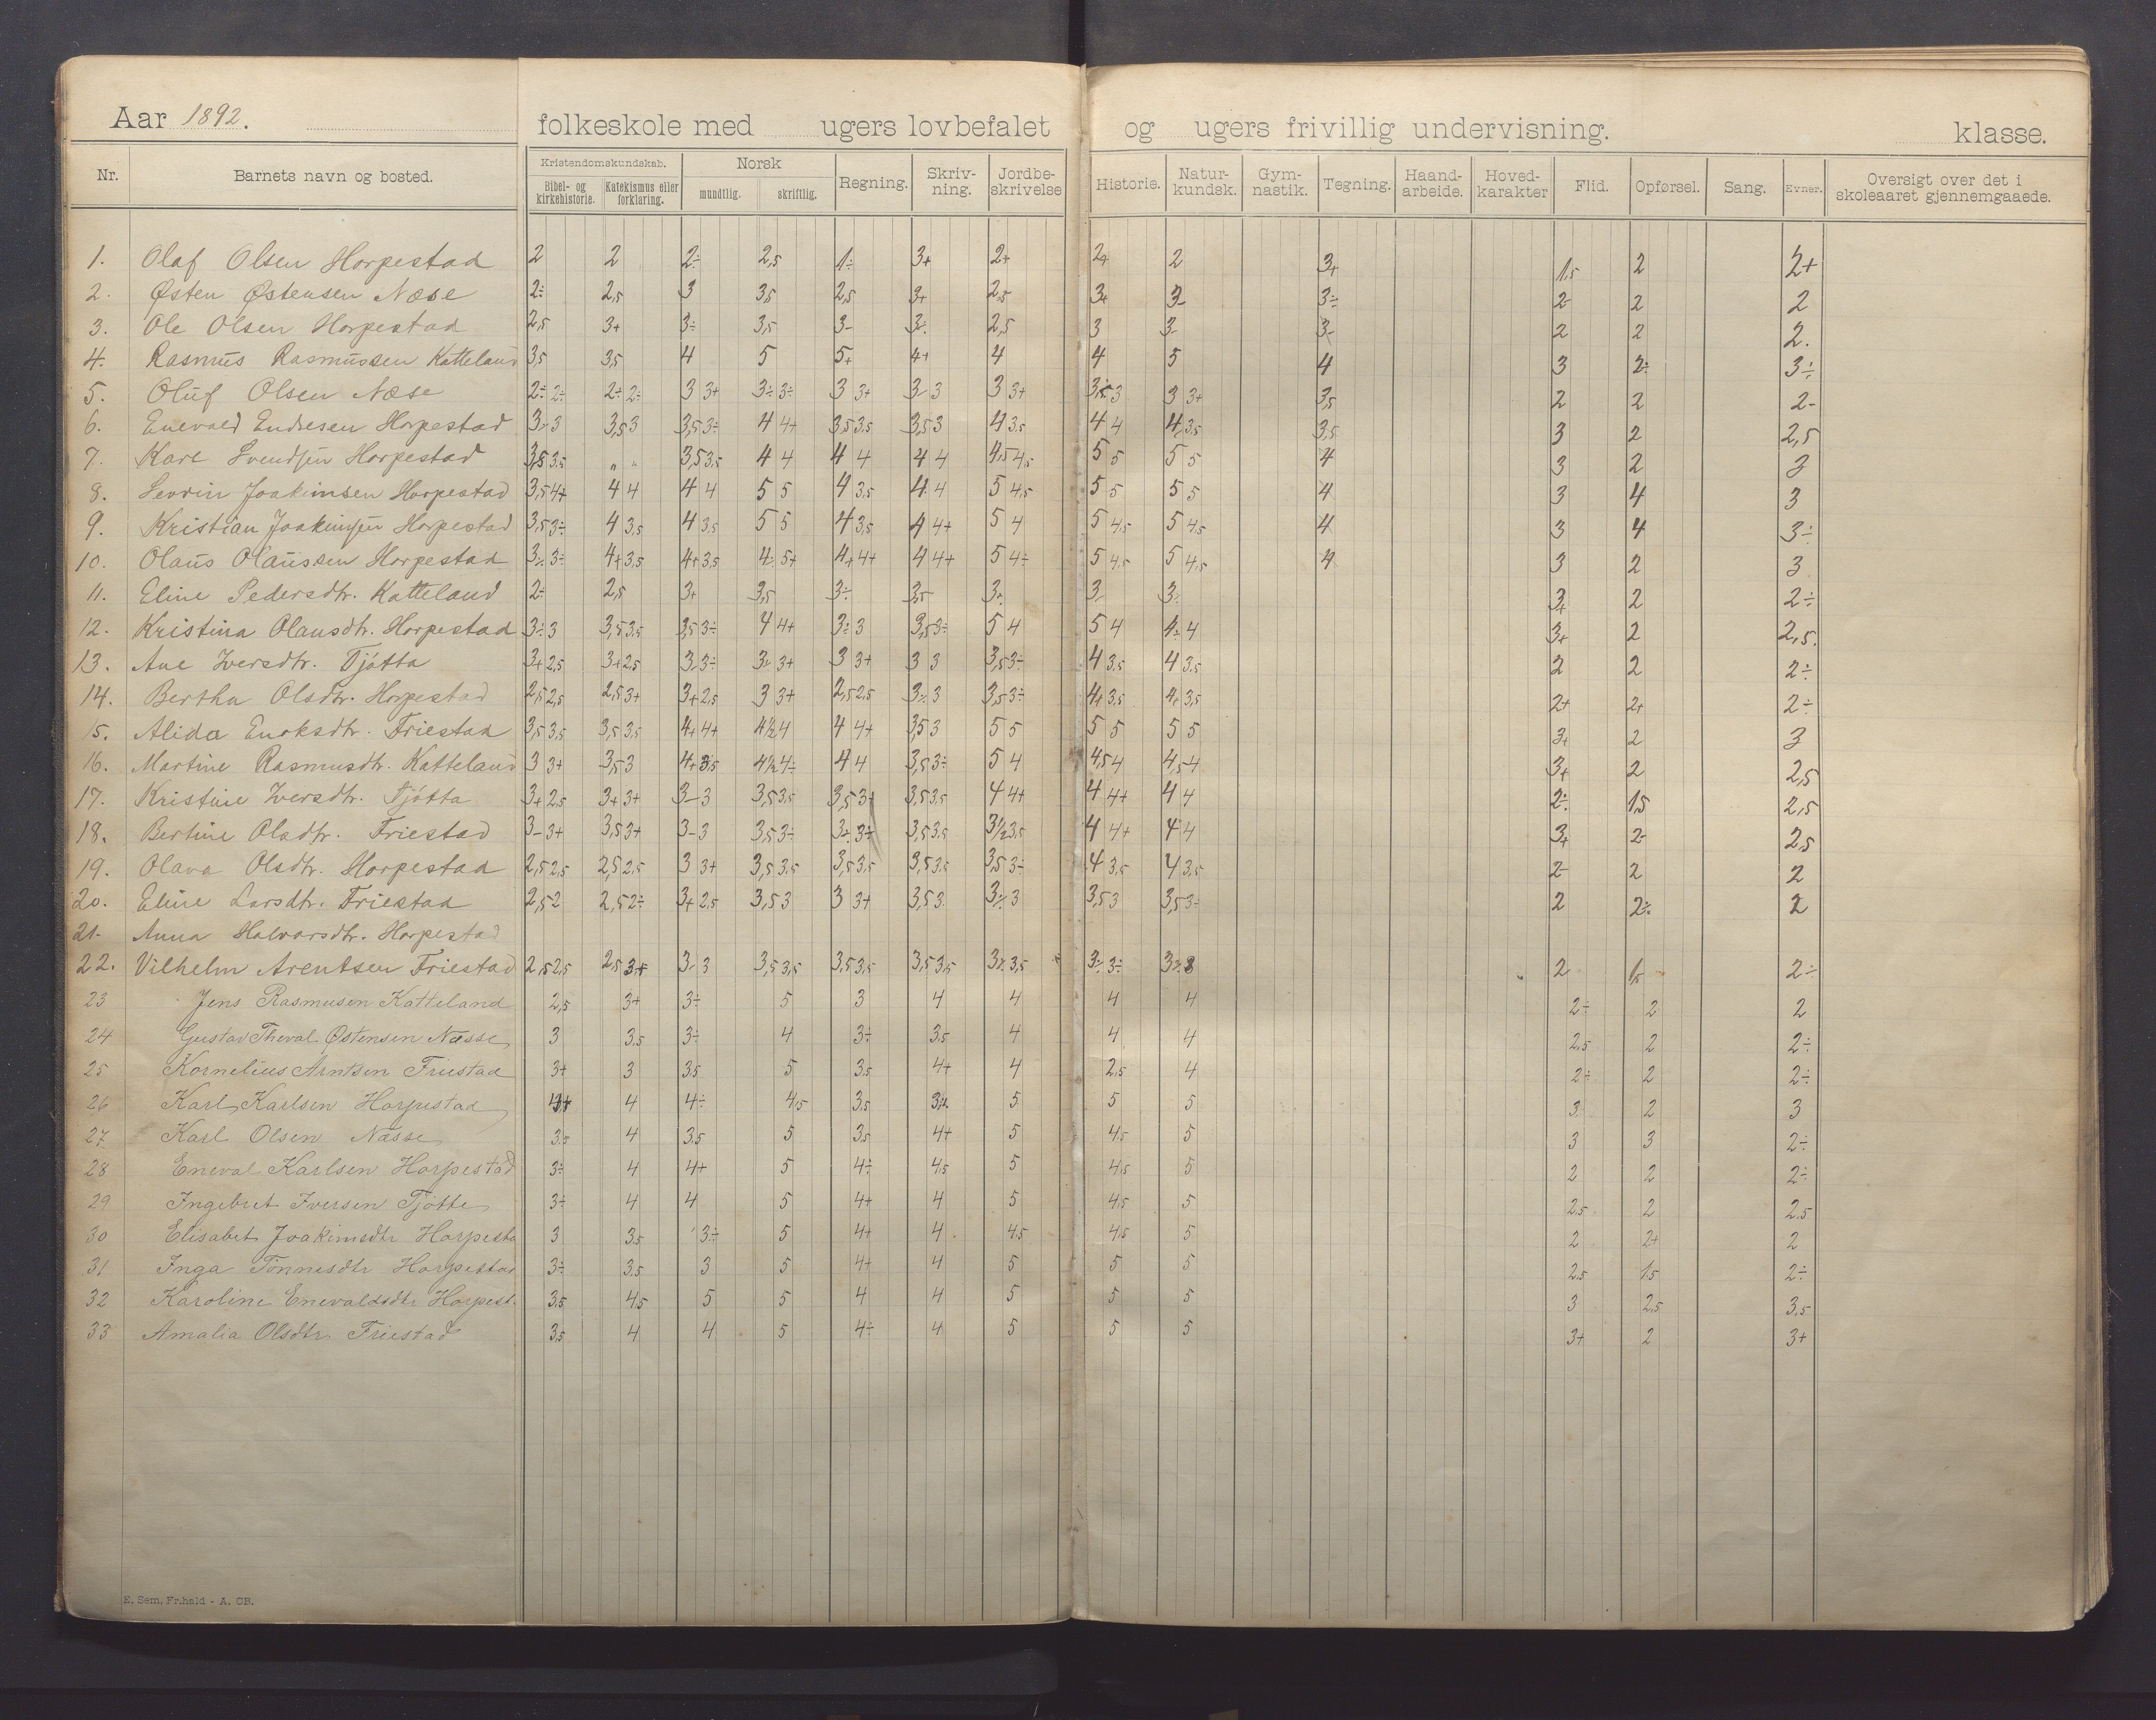 Aar 1892. folkeskole med ugers lovbefalet og ugers frivillig undervisning. klasse.
Nr. Barnets navn og bosted. Kristendomskundskab. Bibel- og kirkehistorie. Katekismus eller forklaring. Norsk mundtlig. skriftlig. Regning. Skriv-ning. Jordbe-skrivelse Historie. Natur-kundsk. Gym-nastik. Tegning. Haand-arbeide. Hoved-karakter Flid. Opførsel. Sang. Evner. Oversigt over det i skoleaaret gjennemgaaede.
1. Olaf Olsen Horpestad 2 2 2÷ 2,5 1÷ 3+ 2+ 2+ 2 3+ 1,5 2 2+
2. Østen Østensen Næse 2÷ 2,5 3 3,5 2,5 3+ 2,5 3+ 3- 3÷ 2- 2 2
3. Ole Olsen Horpestad 2,5 3+ 3÷ 3,5 3- 3÷ 2,5 3 3- 3- 2 2 2.
4. Rasmus Rasmussen Katteland 3,5 3,5 4 5 5+ 4+ 4 4 5 4 3 2÷ 3÷
5. Oluf Olsen Næse 2÷ 2÷ 2÷ 2÷ 3 3+ 3÷ 3÷ 3 3+ 3- 3 3 3+ 3,5 3 3 3+ 3,5 2 2 2-
6. Enevald Endresen Horpestad 3- 3 3,5 3 3,5 3÷ 4 4+ 3,5 3,5 3,5 3 4 3,5 4 4 4 3,5 3,5 3 2 2,5
7. Karl Svendsen Horpestad 3,5 3,5 „ „ 3,5 3,5 4 4 4 4 4 4 4,5 4,5 5 5 5 5 4 3 2 3
8. Sevrin Joakimsen Horpestad 3,5 4+ 4 4 4 4 5 5 4 3,5 4 4 5 4,5 5 5 5 5 4 3 4 3
9. Kristian Joakimsen Horpestad 3,5 3÷ 4 3,5 4 3,5 5 5 4 3,5 4 4+ 5 4 5 4,5 5 4,5 4 3 4 3÷
10. Olaus Olaussen Horpestad 3÷ 3÷ 4+ 3,5 4+ 3,5 4÷ 5+ 4+ 4+ 4 4+ 5 4÷ 5 4,5 5 4,5 4 3 2 3
11. Eline Pedersdtr. Katteland 2÷ 2,5 3+ 3,5 3÷ 3,5 3+ 3- 3÷ 3+ 2 2÷
12. Kristina Olausdtr. Horpestad 3÷ 3 3,5 3,5 3,5 3÷ 4 4+ 3÷ 3 3,5 3÷ 5 4 5 4 4÷ 4 3+ 2 2,5.
13. Ane Iversdtr. Tjøtta 3+ 2,5 3+ 2,5 3- 3÷ 3- 3+ 3 3+ 3 3 3,5 3÷ 4 3,5 4 3,5 2 2 2÷
14. Bertha Olsdtr. Horpestad 2,5 2,5 2,5 3+ 3+ 2,5 3 3+ 2,5 2,5 3÷ 3 3,5 3÷ 4+ 3,5 4+ 3,5 2+ 2+ 2÷
15. Alida Enoksdtr. Friestad 3,5 3,5 3,5 3,5 4+ 4+ 4½ 4 4 4+ 3,5 3 5 5 5 5 5 5 3+ 2 3
16. Martine Rasmusdtr. Katteland 3 3+ 3,5 3 4+ 3,5 4½ 4÷ 4 4 3,5 3÷ 5 4 4,5 4 4,5 4 3+ 2 2,5
17. Kristine Iversdtr. Tjøtta 3+ 2,5 3+ 3+ 3- 3 3,5 3,5 3,5 3+ 3,5 3,5 4 4+ 4 4+ 4 4 2÷ 1,5 2,5
18. Bertine Olsdtr. Friestad 3- 3+ 3,5 3+ 3- 3 3,5 3÷ 3÷ 3÷ 3,5 3,5 3½ 3,5 4 4+ 4 4 3+ 2- 2,5
19. Olava Olsdtr. Horpestad 2,5 2,5 2,5 2,5 3 3+ 3,5 3,5 3,5 3,5 3,5 3,5 3,5 3÷ 4 3,5 4 3,5 2- 2 2
20. Eline Larsdtr. Friestad 2,5 2 2,5 2÷ 3+ 2,5 3,5 3 3 3+ 3,5 3 3÷ 3 3,5 3 3,5 3÷ 2 2÷ 2
21. Anna Halvorsdtr. Horpestad
22. Vilhelm Arentsen Friestad 2,5 2,5 2,5 3+ 3- 3 3,5 3,5 3,5 3,5 3,5 3,5 3÷ 3,5 3÷ 3÷ 3÷ 3 2 1,5 2÷
23 Jens Rasmusen Katteland 2,5 3+ 3÷ 5 3 4 4 4 4 2÷ 2 2
24 Gustav Theval Østensen Næsse 3 3,5 3÷ 4 3÷ 3,5 4 4 4 2,5 2 2÷
25 Kornelius Arntsen Friestad 3+ 3 3,5 5 3,5 4+ 4 2,5 4 2÷ 2 2÷
26 Karl Karlsen Horpestad 4 4÷ 4,5 3,5 5 5 5 3 2 3
27 Karl Olsen Næsse 3,5 4 3,5 5 3,5 4+ 5 4,5 5 3 3 2÷
28 Eneval Karlsen Horpestad 3÷ 4 4+ 5 4÷ 4,5 5 4,5 5 2 2 2÷
29 Ingebret Iversen Tjøtte 3÷ 4 4 5 4+ 4 5 4,5 5 2,5 2 2,5
30 Elisabet Joakimsdtr Horpesta 3 3,5 3÷ 5 4+ 4 4,5 4,5 5 2 2+ 2
31 Inga Tønnesdtr Horpestad 3÷ 3,5 3 5 4+ 4 5 5 5 2,5 1,5 2÷
32 Karoline Enevaldsdtr Horpest. 3,5 4,5 5 5 4 4 5 5 5 3 2,5 3,5
33 Amalia Olsdtr Friestad 3,5 4 4 5 4÷ 4 5 5 5 3+ 2 3+
E. Sem, Fr.hald - A. CB.